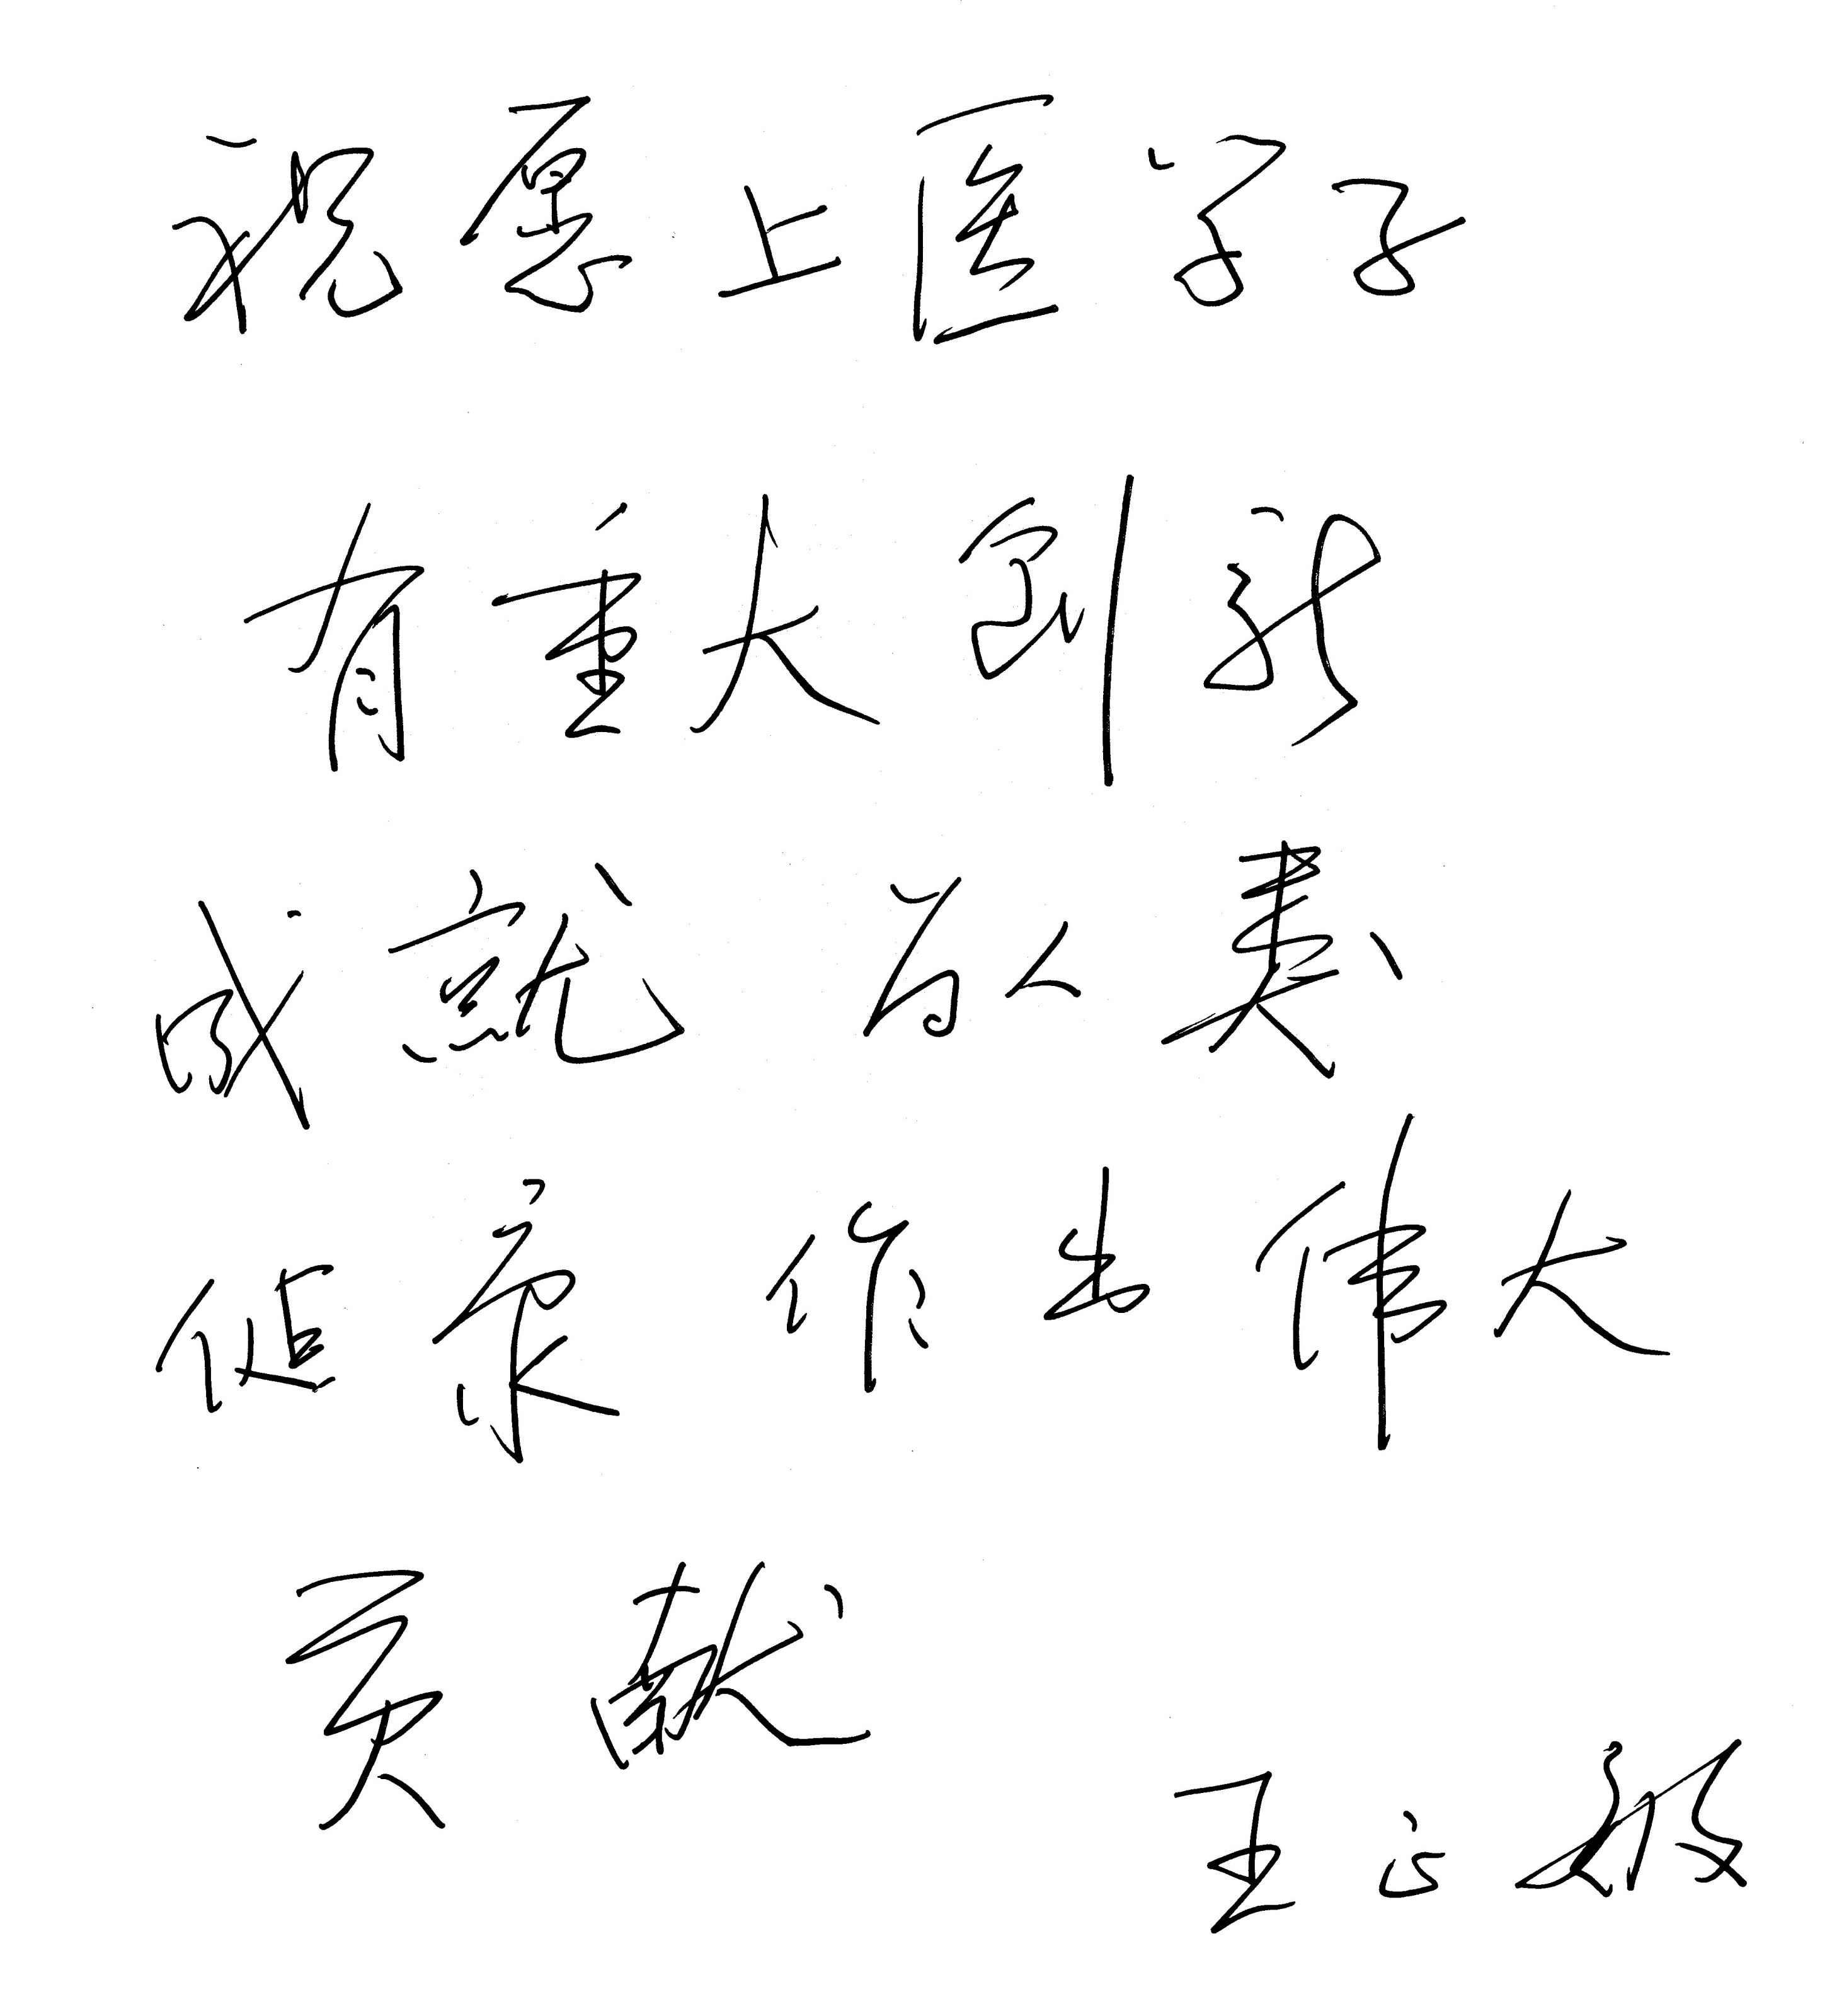 祝愿上医学子
有重大创新
成就 为人类
健康 作出伟大
贡献
王正敏